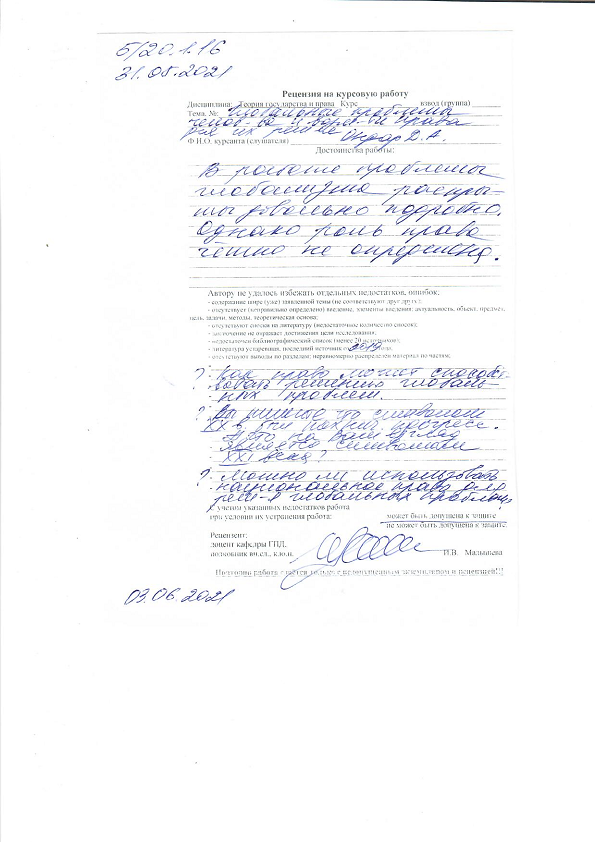 Б/20.1.16
31.05.2021
Рецензия на курсовую работу
Дисциплина: Теория государства и права Курс взвод (группа)
Тема. №: Глобальные проблемы
и права
для их
Ф.И.О. курсанта (слушателя) Д.А.
Достоинства работы:
В работе проблемы
глобализма раскры-
ты довольно подробно.
Однако роль права
чётко не определена.
Автору не удалось избежать отдельных недостатков, ошибок.
- содержание шире (уже) заявленной темы (не соответствуют друг другу);
- отсутствует (неправильно определено) введение, элементы введения: актуальность, объект, предмет,
цель, задачи, методы, теоретическая основа;
- отсутствуют сноски на литературу (недостаточное количество сносок);
- заключение не отражает достижения цели исследования;
- недостаточен библиографический список (менее 20 источников);
- литература устаревшая, последний источник
- отсутствуют выводы по разделам; неравномерно распределен материал по частям;
? Как право может способст-
вовать решению глобаль-
ных проблем.
? Вы пишете что символом
XX в. был прогресс.
Что на Ваш взгляд
является символом
XXI века?
? Можно ли использовать
национальное право для
реш-я глобальных проблем?
С учетом указанных недостатков работа
при условии их устранения работа: может быть допущена к защите
не может быть допущена к защите.
Рецензент:
доцент кафедры ГПД,
полковник вн.сл., к.ю.н. И.В.
03.06.2021